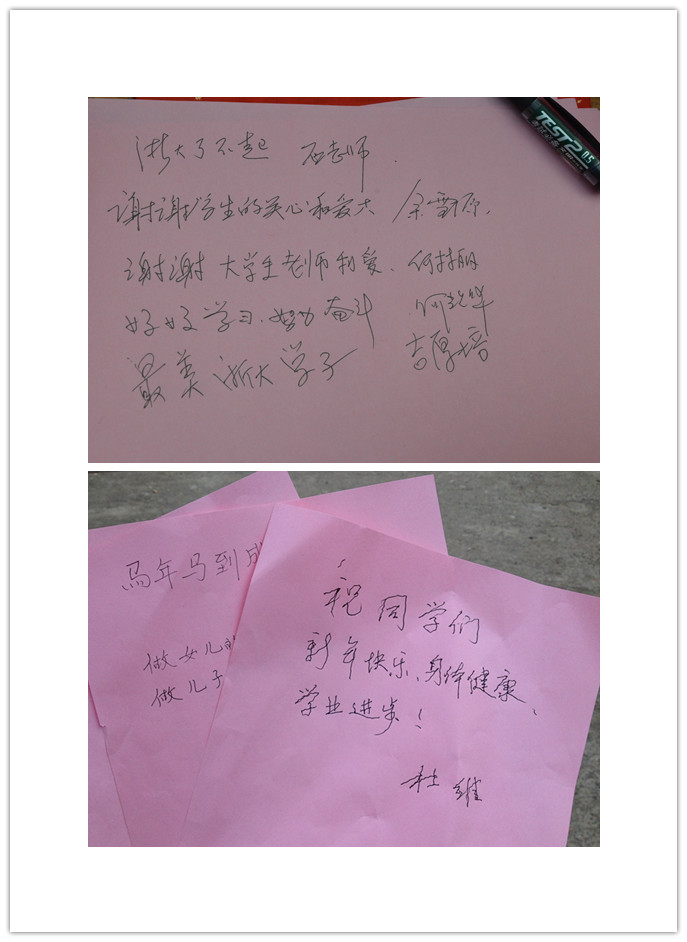 浙大了不起 石老师.
TEST2 0.5
谢谢学生的关心和爱 余雪原.
谢谢大学生老师和爱. 何
好好学习.努力奋斗 何
最美浙大学子 吉厚培
马年马到成
做女儿的
做儿子
祝同学们
新年快乐、身体健康、
学业进步!
杜维